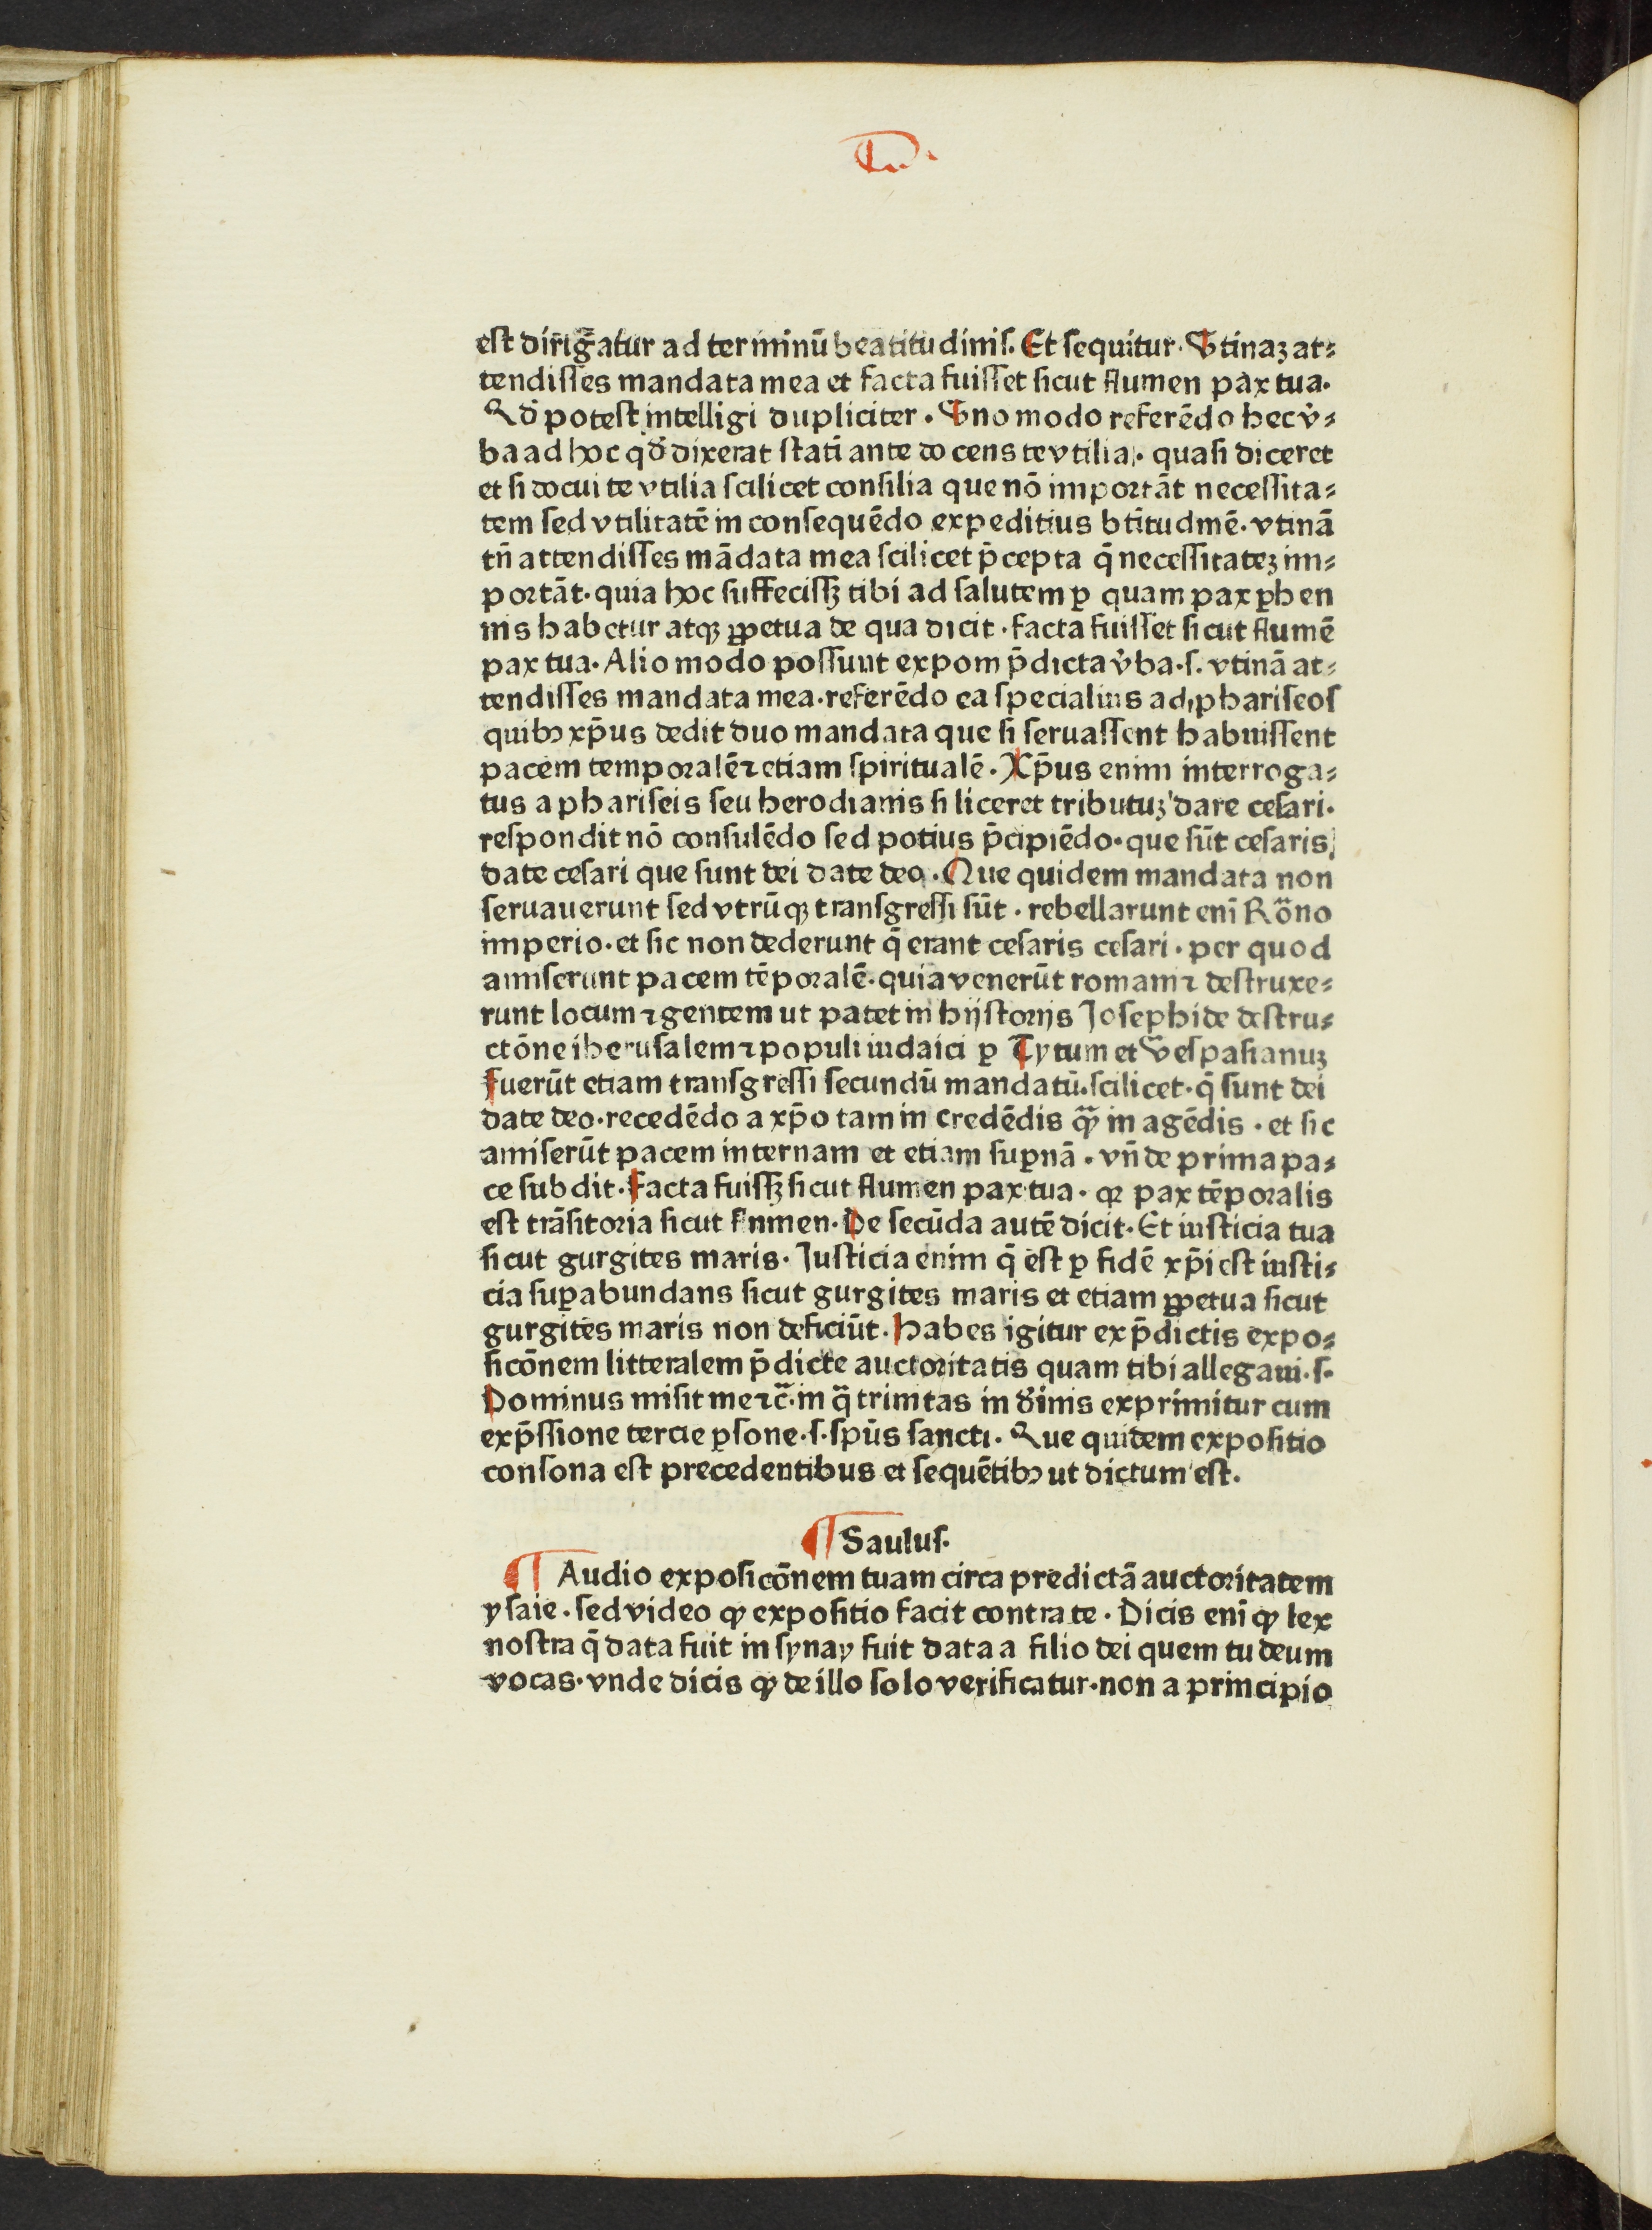 est dirig̃atur ad terminū beatitudinis. Et sequitur. Vtinaꝫ at⸗
tendisses mandata mea et facta fuisset sicut flumen pax tua.
Qd̕ potest intelligi dupliciter. Vno modo referēdo hec v̕⸗
ba ad hoc qd̕ dixerat stati ante docens te vtilia. quasi diceret
et si docui te vtilia scilicet consilia que nō importāt necessita⸗
tem sed vtilitatē in consequēdo expeditius bt̄itudinē. vtinā
tn̄ attendisses mādata mea scilicet p̄cepta q̄ necessitateꝫ im⸗
portāt. quia hoc suffecissꝫ tibi ad salutem ꝑ quam pax ꝑhen
nis habetur atqꝫ ꝑpetua de qua dicit. facta fuisset sicut flumē
pax tua. Alio modo possunt exponi p̄dicta v̕ba. s. vtinā at⸗
tendisses mandata mea. referēdo ea specialius ad phariseos
quibꝰ xp̄us dedit duo mandata que si seruassent habuissent
pacem temporalē ⁊ etiam spiritualē. Xp̄us enim interroga⸗
tus a phariseis seu herodianis si liceret tributuꝫ dare cesari.
respondit nō consulēdo sed potius p̄cipiēdo. que sūt cesaris
date cesari que sunt dei date deo. Que quidem mandata non
seruauerunt sed vtrūqꝫ transgressi sūt. rebellarunt eni̅ Rōno
imperio. et sic non dederunt q̄ erant cesaris cesari. per quod
amiserunt pacem tēporalē. quia venerūt romani ⁊ destruxe⸗
runt locum ⁊ gentem ut patet in hijstorijs Josephi de destru⸗
ctōne iherusalem ⁊ populi iudaici ꝑ Tytum et Vespasianuꝫ
fuerūt etiam transgressi secundū mandatū. scilicet. q̄ sunt dei
date deo. recedēdo a xp̄o tam in credēdis qꝫ̄ in agēdis. et sic
amiserūt pacem internam et etiam suꝑnā. vn̄ de prima pa⸗
ce subdit. Facta fuissꝫ sicut flumen pax tua. qꝛ pax tēporalis
est trāsitoria sicut flnmen. De secūda autē dicit. Et iusticia tua
sicut gurgites maris. Justicia enim q̄ est ꝑ fidē xp̄i est iusti⸗
cia suꝑabundans sicut gurgites maris et etiam ꝑpetua sicut
gurgites maris non deficiūt. Habes igitur ex p̄dictis expo⸗
sicōnem litteralem p̄dicte auctoritatis quam tibi allegaui. s.
Dominus misit me ⁊c̄. in q̄ trinitas in d̕inis exprimitur cum
exp̄ssione tercie ꝑsone. s. spūs sancti. Que quidem expositio
consona est precedentibus et sequētibꝰ ut dictum est.
¶ Saulus.
¶ Audio exposicōnem tuam circa predictā auctoritatem
ysaie. sed video ꝙ expositio facit contra te. Dicis eni̅ ꝙ lex
nostra q̄ data fuit in synay fuit data a filio dei quem tu deum
vocas. vnde dicis ꝙ de illo solo verificatur. non a principio